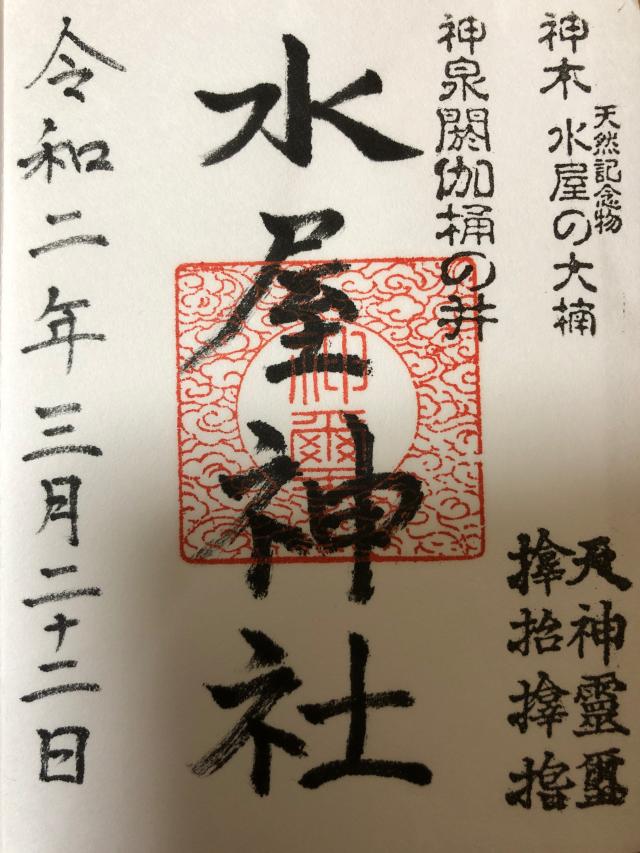 天然記念物
神木 水屋の大楠
神泉閼伽桶の井
神靈璽
水屋神社
神璽
令和二年三月二十二日